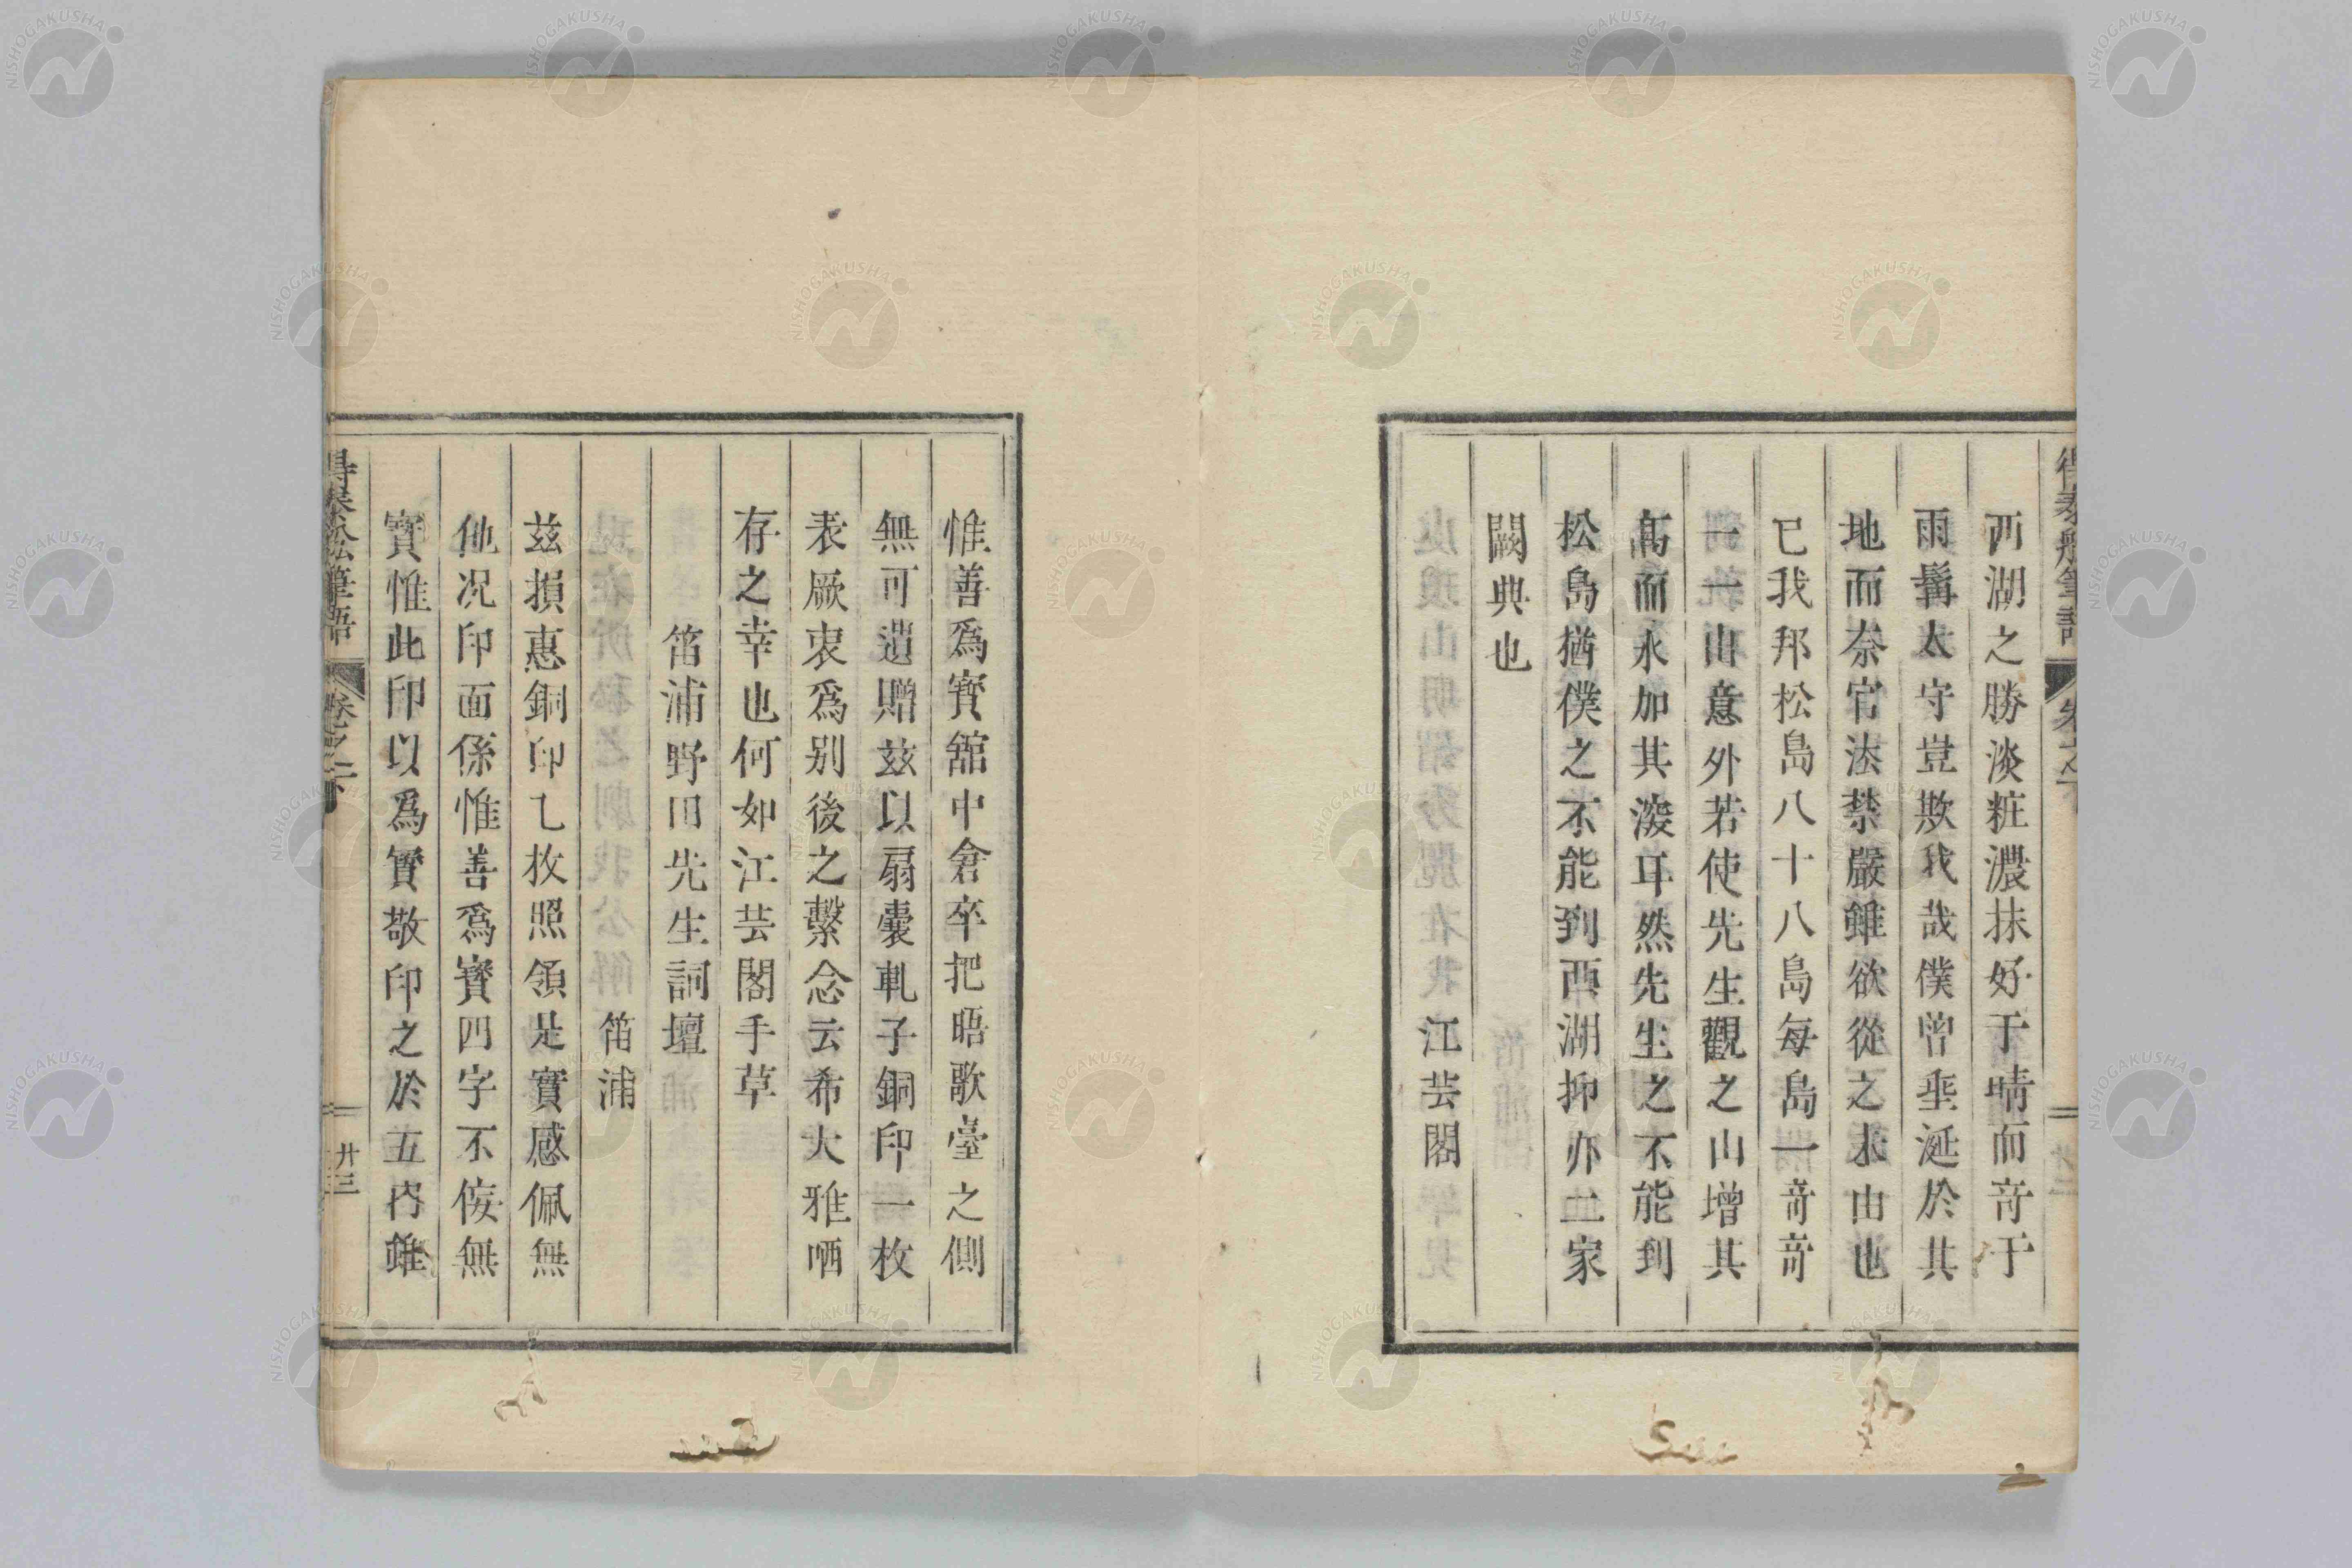 西湖之勝淡粧濃抹好于晴而竒于
雨髯太守豈欺我哉僕曽垂涎於其
地而奈官法禁嚴雖欲從之末由也
已我邦松島八十八島每島一竒竒
一一山意外若使先生觀之山增其
高而水加其深耳然先生之不能到
松島猶僕之不能到西湖抑亦二家
闕典也
江芸閣
惟善爲寳舘中倉卒把晤歌臺之側
無可遺贈茲以扇囊軋子銅印一枚
表厥衷爲别後之繫念云希大雅哂
存之幸也何如江芸閣手草
笛浦野田先生詞壇
笛浦
茲損惠銅印乙枚照領是實感佩無
他况印面係惟善爲寳四字不佞無
寳惟此印以爲寳敬印之於五内雖
得泰船筆語
卷之下
廿三
NISHOGAKUSHA